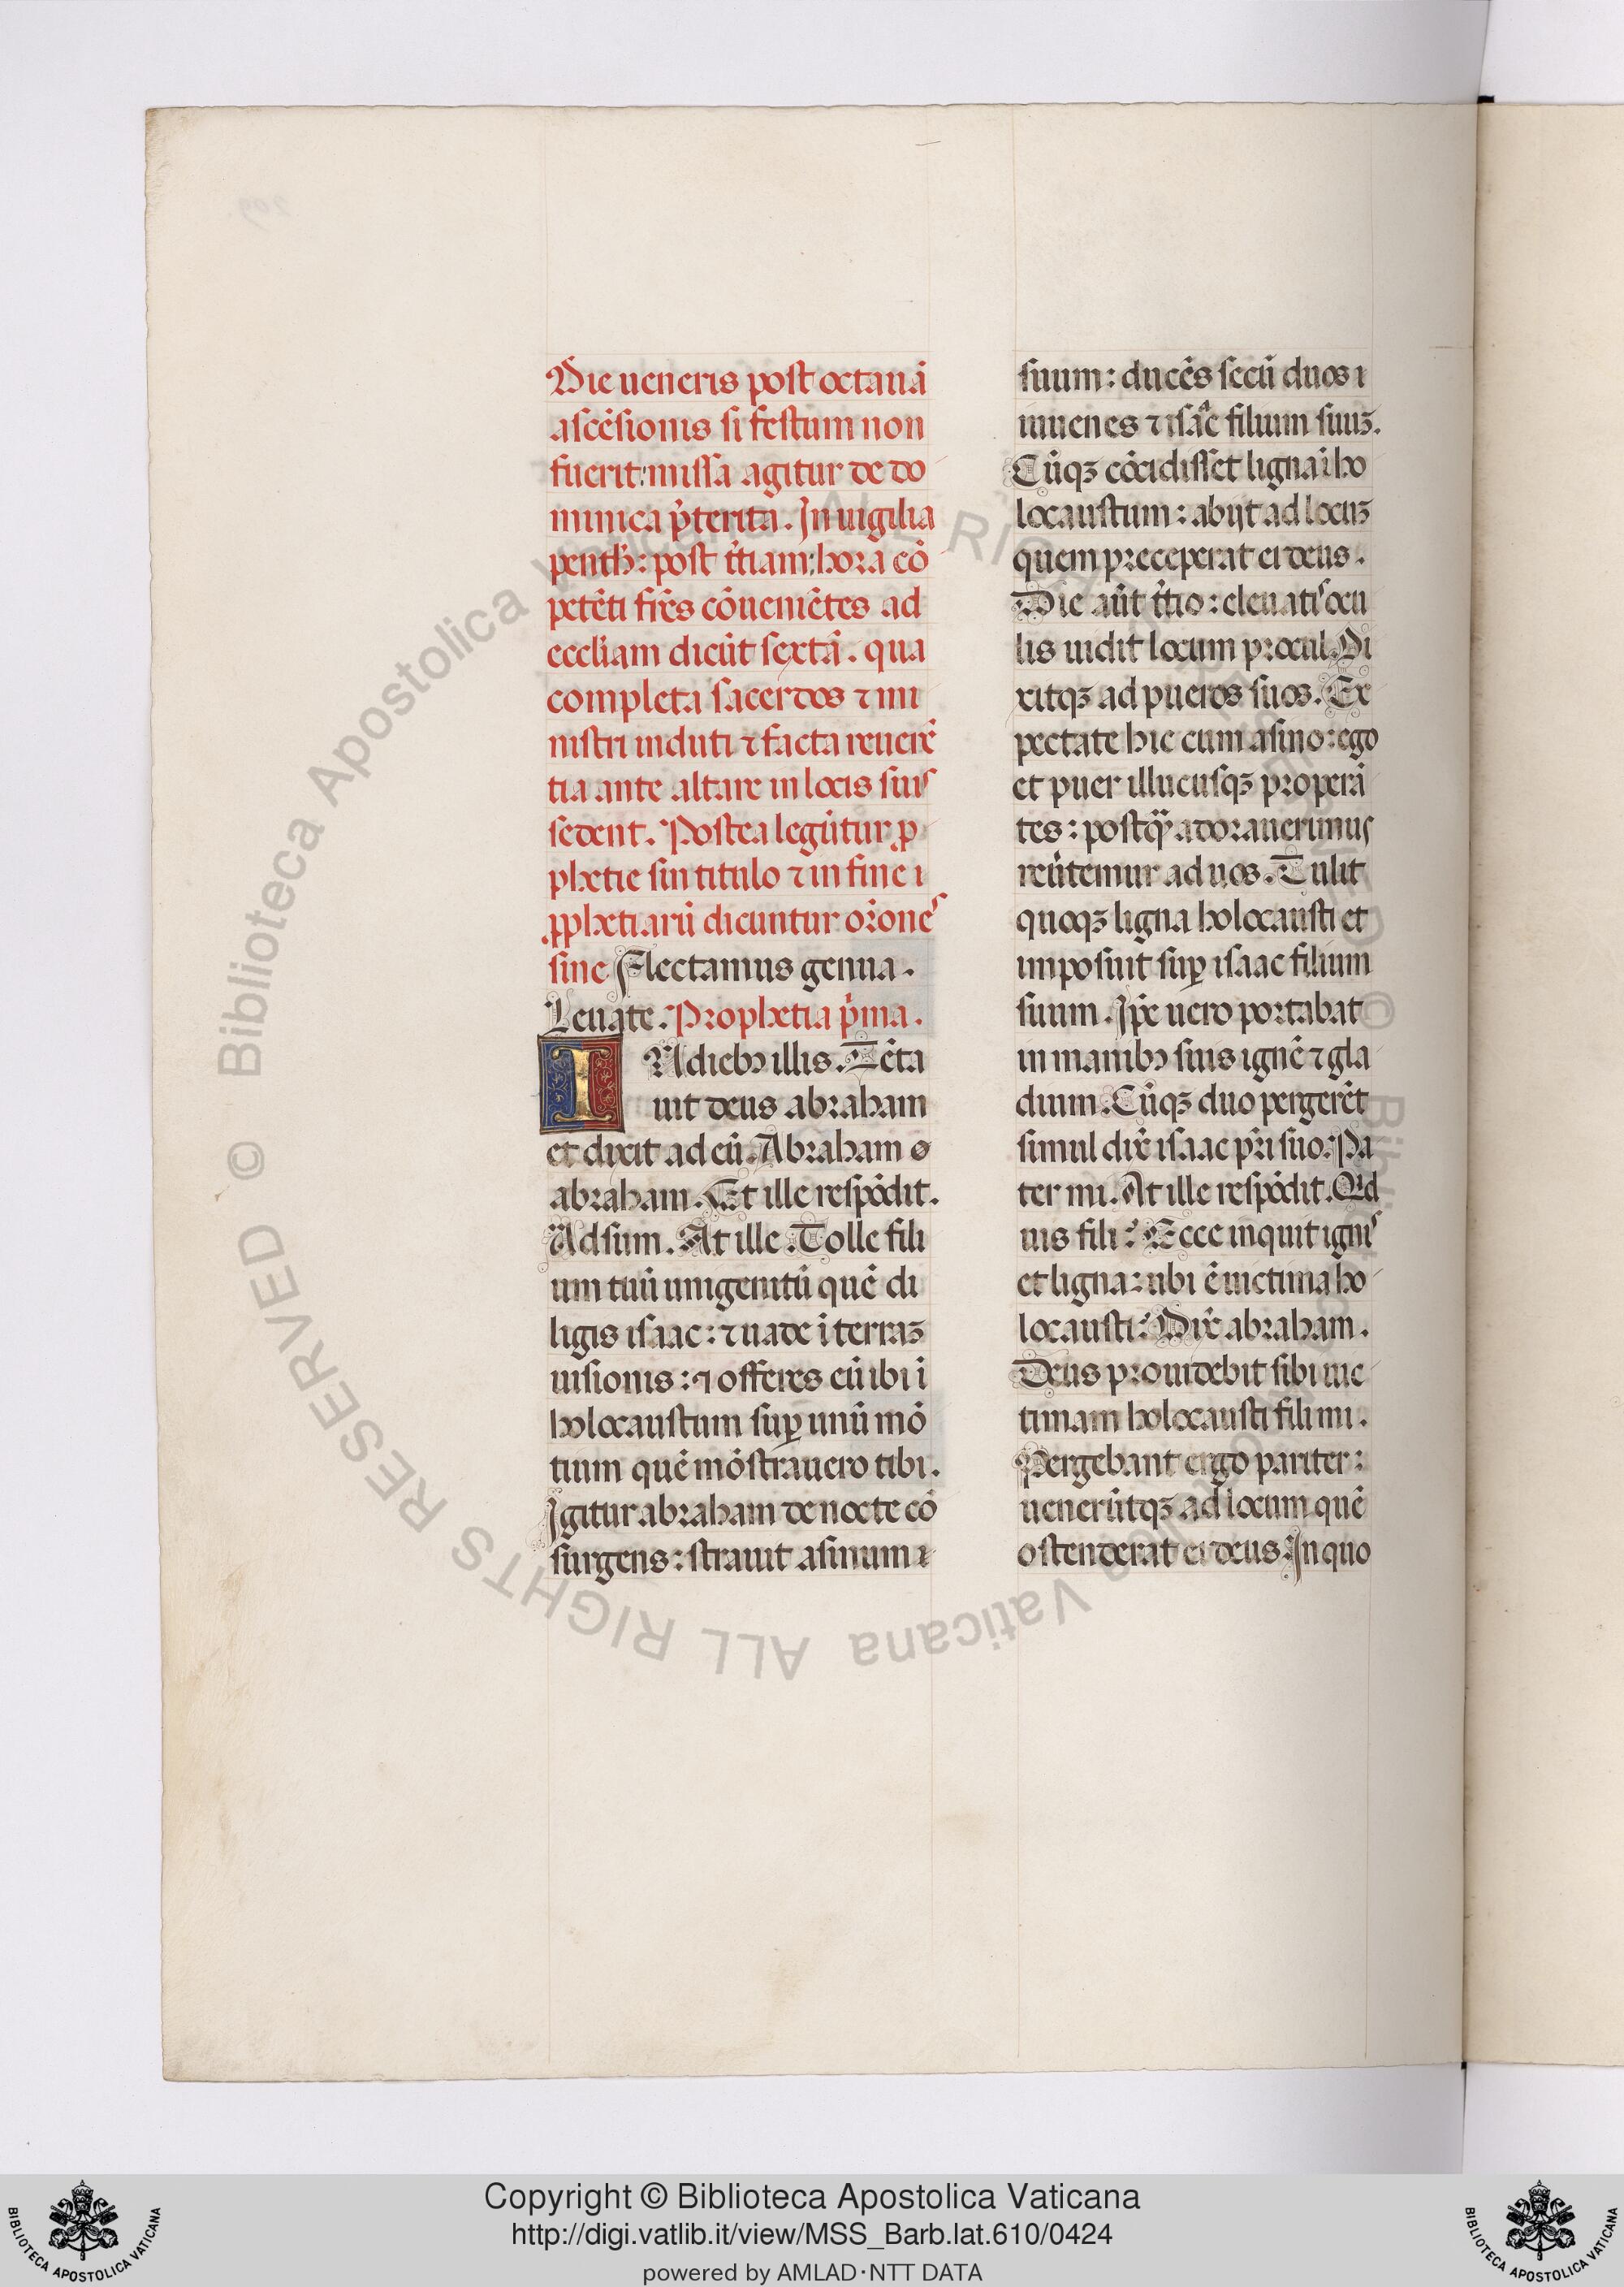 Die ueneris post octauā
ascēsionis si festum non
fuerit: missa agitur de do
minica p̄terita. In uigilia
penth̄: post t̄tiam: hora cō
petēti fr̄es cōueniētes ad
eccl̄iam dicūt sextā. qua
completa sacerdos ⁊ mi
nistri induti ⁊ facta reuerē
tia ante altare in locis suis
sedent. Postea legūtur ꝓ
phetie sin titulo ⁊ in fine i
ꝓphetiarū dicuntur or̄ones
sine Flectamus genua.
Leuate. Prophetia p̄ma.
IN dieb; illis. Tēta
uit deus abraham
et dixit ad eū. Abraham o
abraham. Et ille respōdit.
Adsum. At ille. Tolle fili
um tuū unigenitū quē di
ligis isaac: ⁊ uade ī terraꝫ
uisionis: ⁊ offeres eū ibi ī
holocaustum suꝑ unū mō
tium quē mōstrauero tibi.
Igitur abraham de nocte cō
surgens: strauit asinum
suum: ducēs secū duos i
iuuenes ⁊ isāc filium suuꝫ.
Cūqꝫ cōcidisset ligna ī ho
locaustum: abijt ad locuꝫ
quem preceperat ei deus.
Die aūt t̄tio: eleuatis ocu
lis uidit locum procul. Di
xitqꝫ ad pueros suos. Ex
pectate hic cum asino: ego
et puer illucusqꝫ properā
tes: postqᷓ adorauerimus
reūtemur ad uos. Tulit
quoqꝫ ligna holocausti et
imposuit suꝑ isaac filium
suum. Ip̄e uero portabat
in manib; suis ignē ⁊ gla
dium. Cūqꝫ duo pergerēt
simul dix̄ isaac pr̄i suo. Pa
ter mi. At ille respōdit. Qid
uis fili? Ecce inquit ignis
et ligna: ubi ē uictima ho
locausti? Dix̄ abraham.
Deus prouidebit sibi uic
timam holocausti fili mi.
Pergebant ergo pariter:
uenerūtqꝫ ad locum quē
ostenderat ei deus. In quo
© Biblioteca Apostolica Vaticana ALL RIGHTS RESERVED © Biblioteca Apostolica Vaticana ALL RIGHTS RESERVED
Copyright © Biblioteca Apostolica Vaticana
http://digi.vatlib.it/view/MSS_Barb.lat.610/0424
powered by AMLAD·NTT DATA
BIBLIOTECA APOSTOLICA VATICANA
BIBLIOTECA APOSTOLICA VATICANA